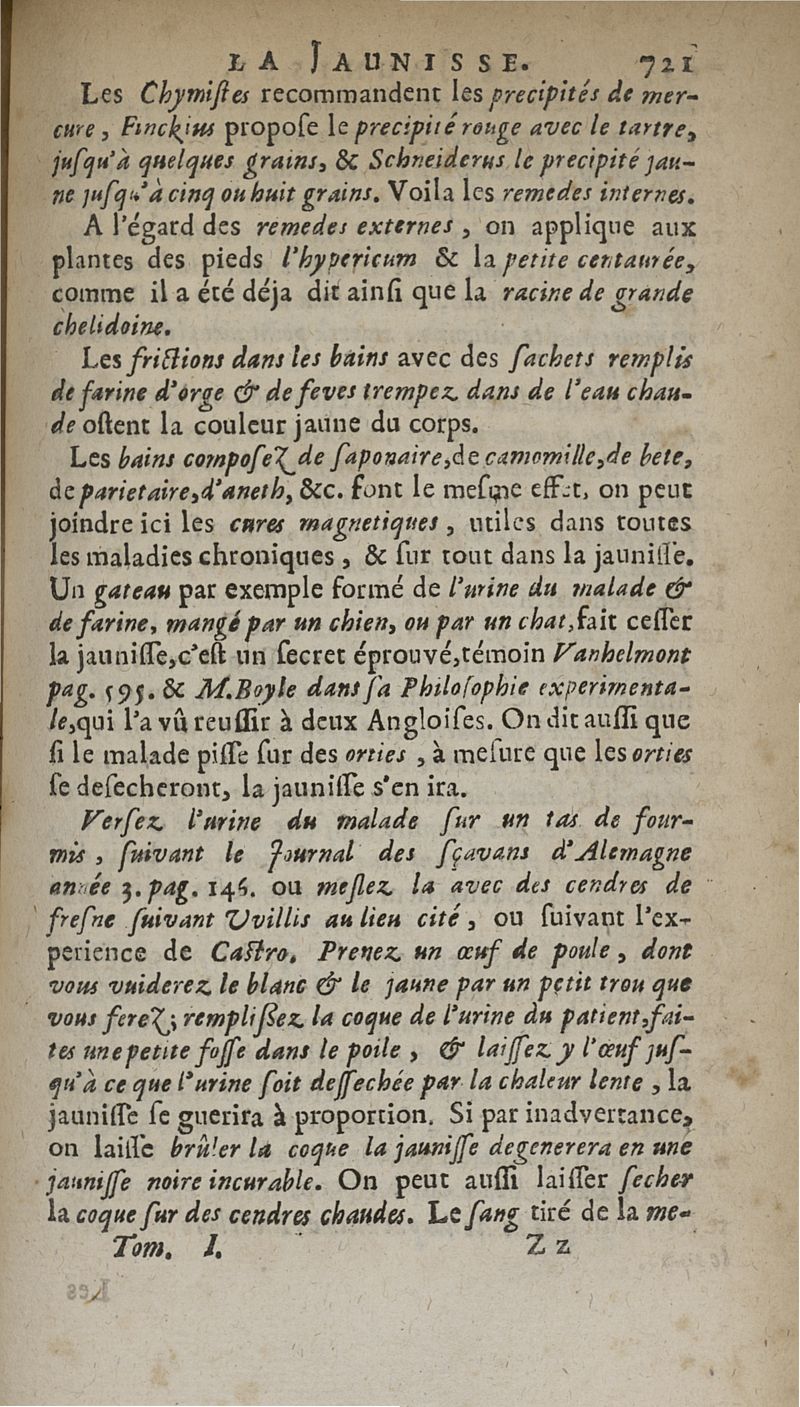 LA JAUNISSE. 721
Les Chymiſtes recommandent les precipités de mer-
cure, Finckius propoſe le precipité rouge avec le tartre,
juſqu'à quelques grains, & Schneiderus le precipité jau-
ne juſqu'à cinq ou huit grains. Voila les remedes internes.
A l'égard des remedes externes, on applique aux
plantes des pieds l'hypericum & la petite centaurée,
comme il a été déja dit ainſi que la racine de grande
chelidoine.
Les frictions dans les bains avec des ſachets remplis
de farine d'orge & de feves trempez dans de l'eau chau-
de oſtent la couleur jaune du corps.
Les bains compoſez de ſaponaire, de camomille, de bete,
de parietaire, d'aneth, &c. font le meſme effet, on peut
joindre ici les cures magnetiques, utiles dans toutes
les maladies chroniques, & ſur tout dans la jauniſſe.
Un gateau par exemple formé de l'urine du malade &
de farine, mangé par un chien, ou par un chat, fait ceſſer
la jauniſſe, c'eſt un ſecret éprouvé, témoin Vanhelmont
pag. 595. & M. Boyle dans ſa Philoſophie experimenta-
le, qui l'a vû reuſſir à deux Angloiſes. On dit auſſi que
ſi le malade piſſe ſur des orties, à meſure que les orties
ſe deſecheront, la jauniſſe s'en ira.
Verſez l'urine du malade ſur un tas de four-
mis, ſuivant le Journal des ſçavans d'Alemagne
année 3. pag. 146. ou meſlez la avec des cendres de
freſne ſuivant Vvillis au lieu cité, ou ſuivant l'ex-
perience de Caſtro. Prenez un œuf de poule, dont
vous vuiderez le blanc & le jaune par un petit trou que
vous ferez; rempliſſez la coque de l'urine du patient, fai-
tes une petite foſſe dans le poile, & laiſſez y l'œuf juſ-
qu'à ce que l'urine ſoit deſſechée par la chaleur lente, la
jauniſſe ſe guerira à proportion. Si par inadvertance,
on laiſſe brûler la coque la jauniſſe degenerera en une
jauniſſe noire incurable. On peut auſſi laiſſer ſecher
la coque ſur des cendres chaudes. Le ſang tiré de la me-
Tom. I. Z z